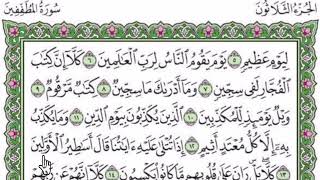 الجزء الثلاثون
سورة المطففين
لِيَوْمٍ عَظِيمٍ ٥ يَوْمَ يَقُومُ النَّاسُ لِرَبِّ الْعَالَمِينَ ٦ كَلَّا إِنَّ كِتَٰبَ
الْفُجَّارِ لَفِي سِجِّينٍ ٧ وَمَا أَدْرَىٰكَ مَا سِجِّينٌ ٨ كِتَٰبٌ مَّرْقُومٌ ٩
وَيْلٌ يَوْمَئِذٍ لِّلْمُكَذِّبِينَ ١٠ الَّذِينَ يُكَذِّبُونَ بِيَوْمِ الدِّينِ ١١ وَمَا يُكَذِّبُ
بِهِ إِلَّا كُلُّ مُعْتَدٍ أَثِيمٍ ١٢ إِذَا تُتْلَىٰ عَلَيْهِ ءَايَٰتُنَا قَالَ أَسَٰطِيرُ الْأَوَّلِينَ
١٣ كَلَّا بَلْ رَانَ عَلَىٰ قُلُوبِهِم مَّا كَانُوا يَكْسِبُونَ ١٤ كَلَّا إِنَّهُمْ عَن رَّبِّهِمْ